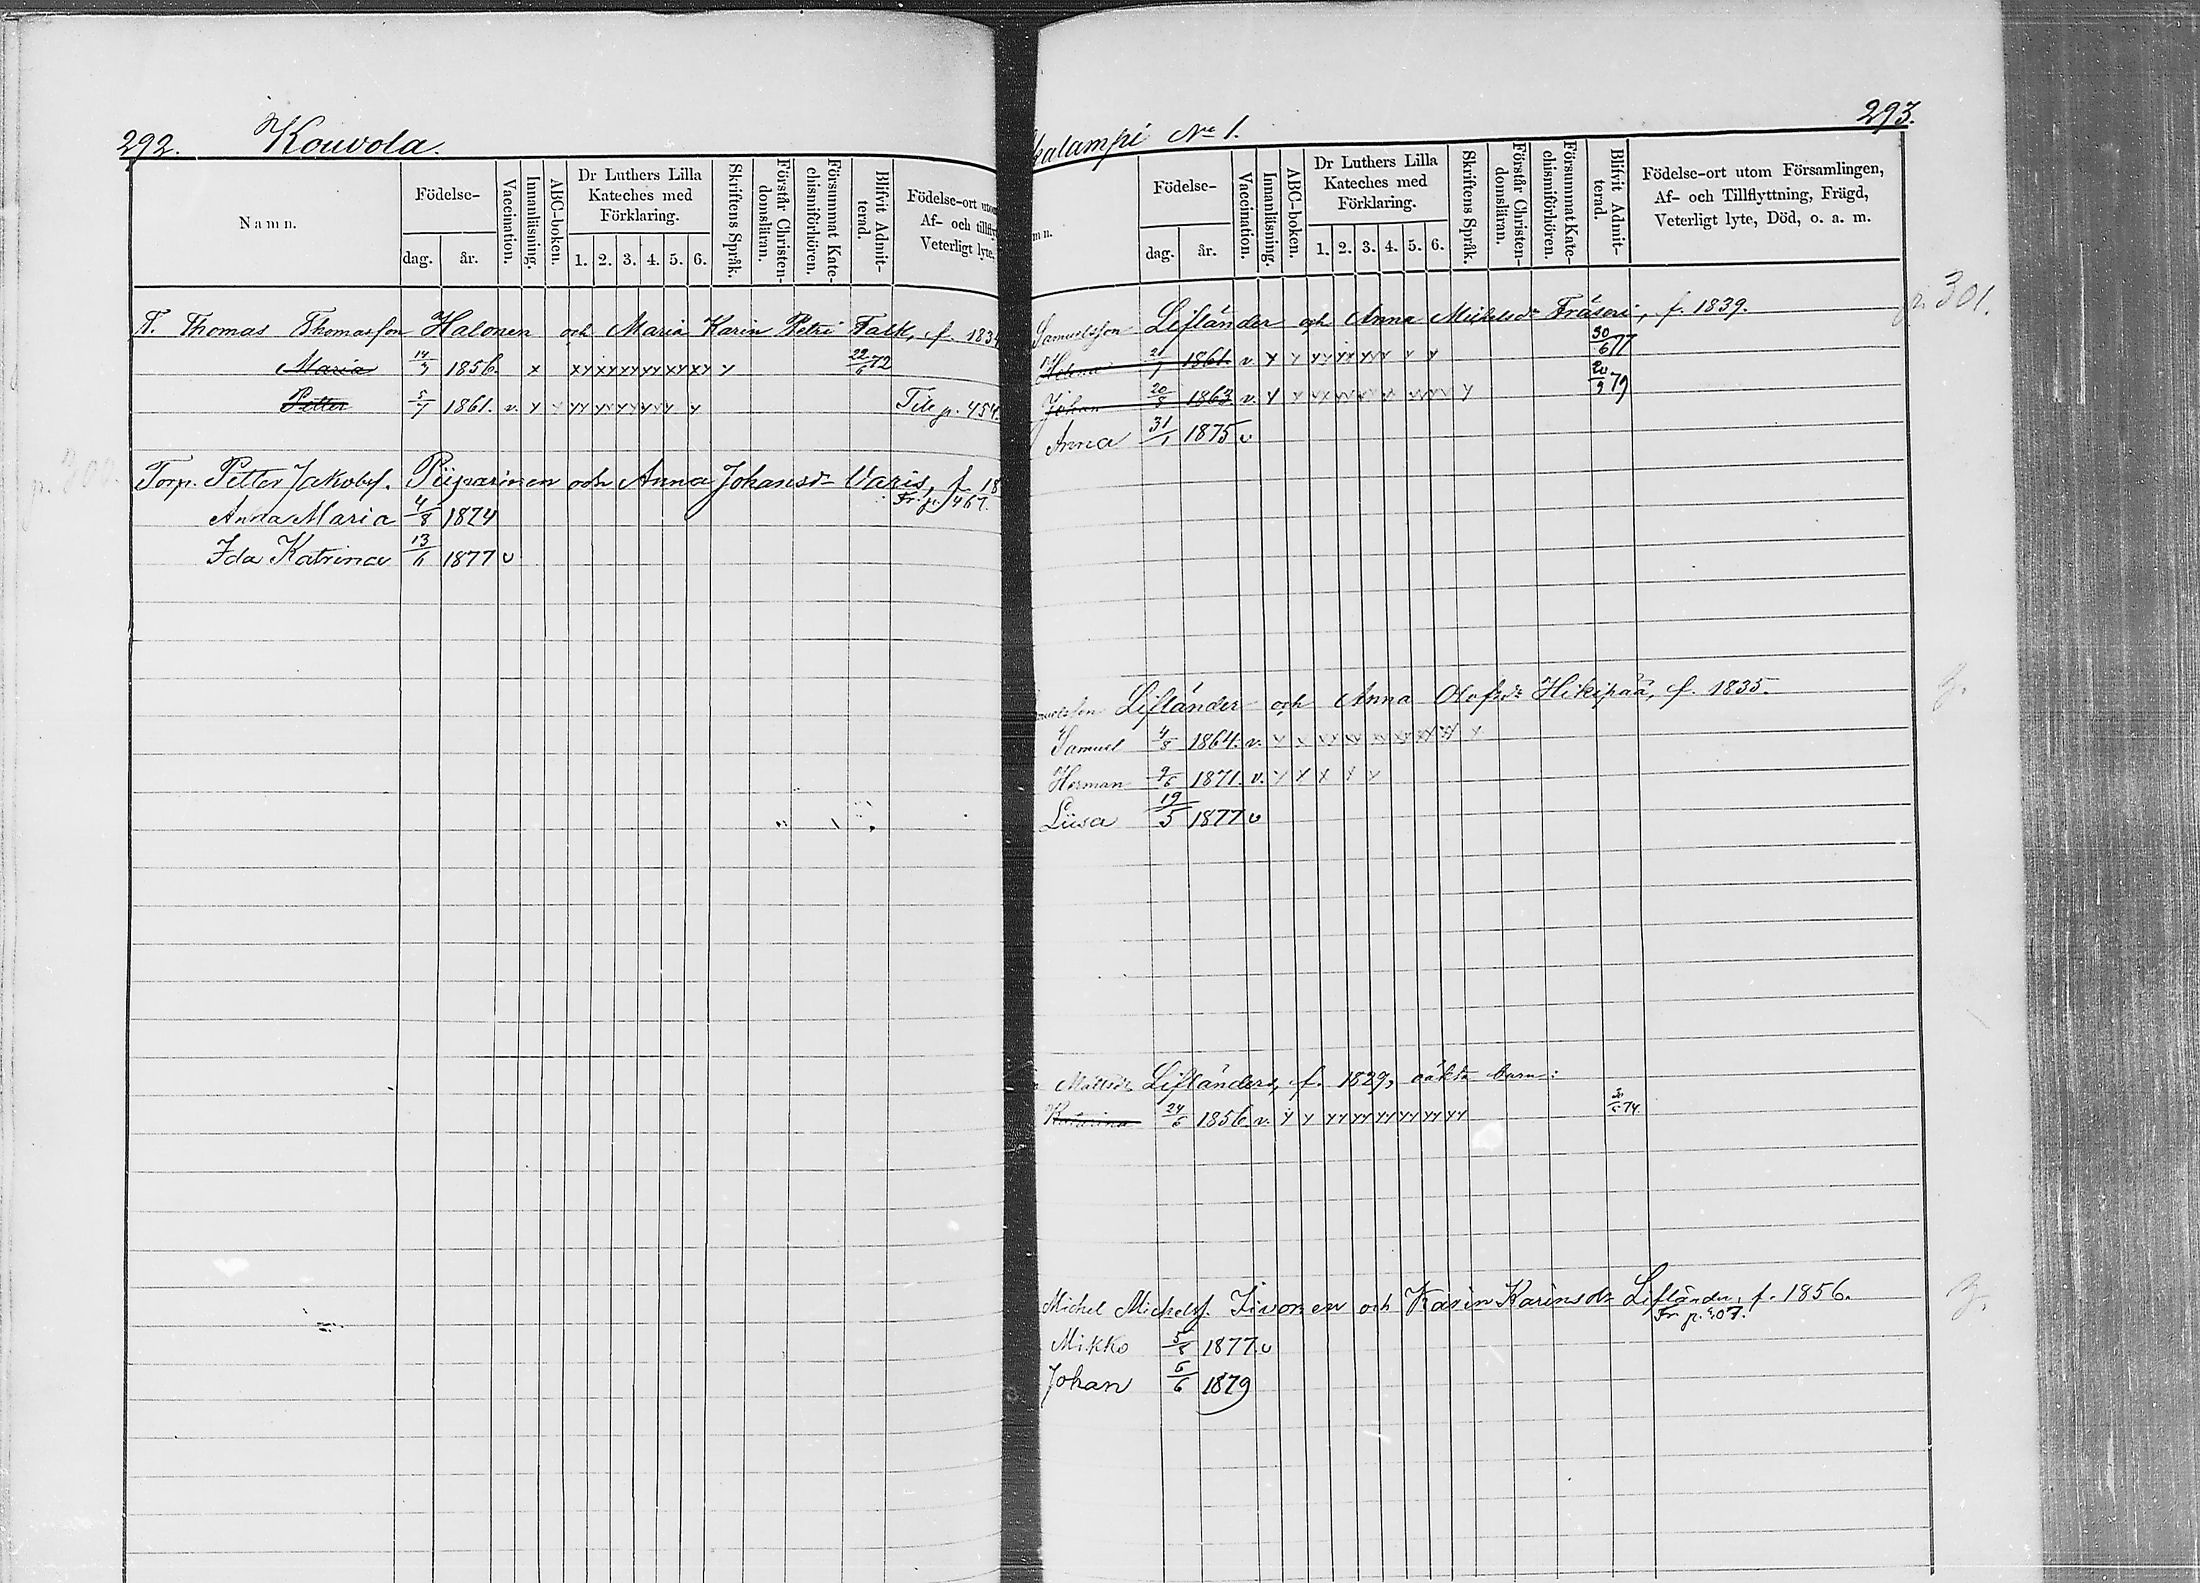 292. Kouvola.
Namn.
Födelse-
dag. år.
Vaccination.
Innanläsning.
ABC-boken.
Dr Luthers Lilla
Kateches med
Förklaring.
1. 2. 3. 4. 5. 6.
Skriftens Språk.
Förstår Christen-
domsläran.
Försummat Kate-
chismiförhören.
Blifvit Admit-
terad.
Födelse-ort utom
Af- och tillfly
Veterligt lyte,
T. Thomas Thomasson Halonen och Maria Karin Petri Falk, f. 1834
Maria 1856. x xx xx xx xx xx xx y 22/6 72
Petter 5/7 1861. v. y y yy yy yy yy y y Till p. 454.
p. 300.
Torp. Petter Jakobsf. Piiparinen och Anna Johansdr Varis, f. 18
Fr. p. 467.
Anna Maria 4/8 1874
Ida Katrina 13/6 1877 v
293.
kalampi No 1.
mn.
Födelse-
dag. år.
Vaccination.
Innanläsning.
ABC-boken.
Dr Luthers Lilla
Kateches med
Förklaring.
1. 2. 3. 4. 5. 6.
Skriftens Språk.
Förstår Christen-
domsläran.
Försummat Kate-
chismiförhören.
Blifvit Admit-
terad.
Födelse-ort utom Församlingen,
Af- och Tillflyttning, Frägd,
Veterligt lyte, Död, o. a. m.
p. 301.
Samuelsson Lifländer och Anna Mickelsdr Fräsari, f. 1839.
Helena 21/1 1861. v. y y yy yy yy y y 30/6 77
Johan 1863. v. y y xx xx xx x xx y 20/9 79
Anna 31/1 1875 v
uelsson Lifländer och Anna Olofsdr Hikipää, f. 1835.
Samuel 4/8 1864. v. y x xy xx xx xx xx xx x
Herman 9/6 1871. v. y y y y y
Liisa 19/5 1877 v
Mattsdr Lifländer, f. 1829, oäkta barn:
Katarina 24/6 1856 v. y y yy yy yy yy yy yy 74.
Michel Michelsf. Iivonen och Karin Karinsdr Lifländer, f. 1856.
Mikko 5/8 1877. v
Johan 6/6 1879